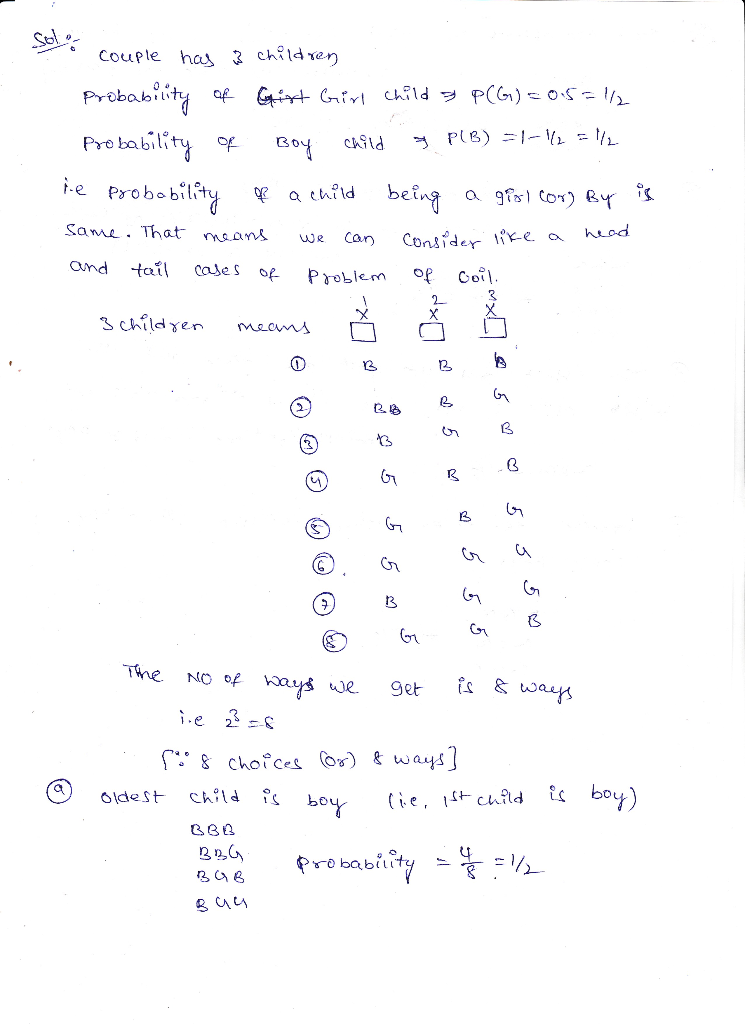 Sol :-
Couple has 3 children
Probability of Girl child ⇒ P(G) = 0.5 = 1/2
Probability of Boy child ⇒ P(B) = 1 - 1/2 = 1/2
i.e Probability of a child being a girl (or) By is
Same. That means we can Consider like a head
and tail cases of Problem of Coil.
1 2 3
x x x
3 children means □ □ □
① B B B
② BB B G
③ B G B
④ G B B
⑤ G B G
⑥ G G G
⑦ B G G
⑧ G G B
The NO of ways we get is 8 ways
i.e 2³ = 8
[∵ 8 choices (or) 8 ways]
ⓐ oldest child is boy (i.e, 1st child is boy)
BBB
BBG
BGB
BGG
Probability = 4/8 = 1/2